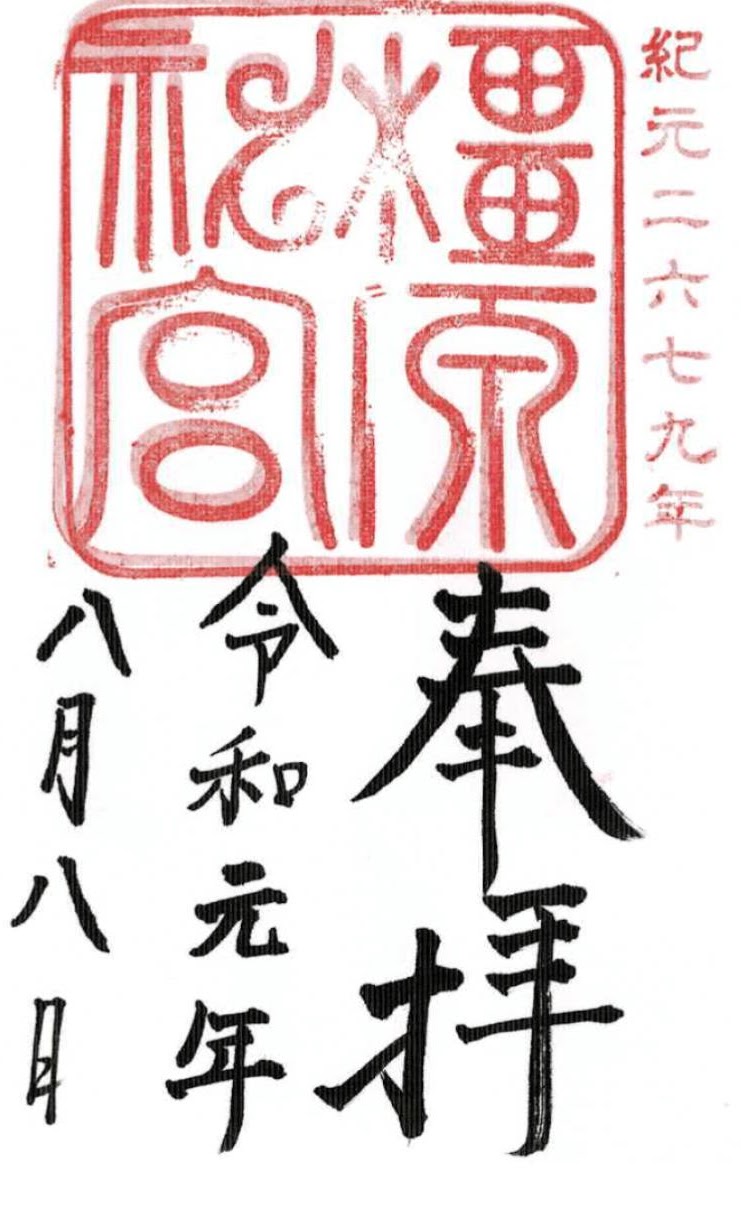 紀元二六七九年
橿原
神宮
奉拝
令和元年
八月八日